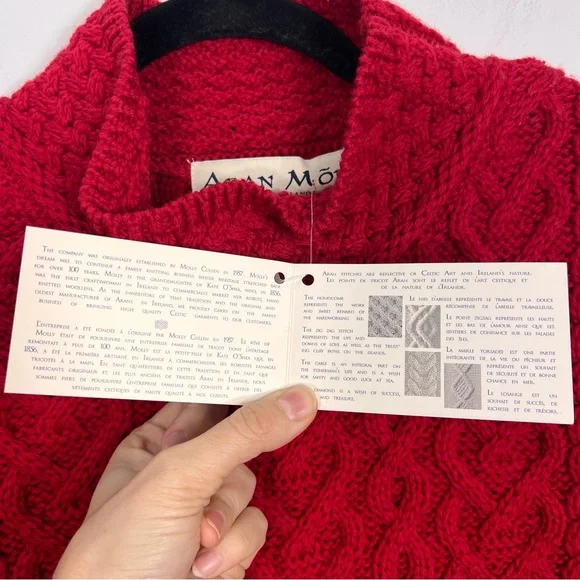 ARAN MÓR
THE COMPANY WAS ORIGINALLY ESTABLISHED BY MOLLY CULLEN IN 1987. MOLLY'S
DREAM WAS TO CONTINUE A FAMILY KNITTING BUSINESS WHOSE HERITAGE STRETCHED BACK
FOR OVER 100 YEARS. MOLLY IS THE GRANDDAUGHTER OF KATE O'SHEA WHO, IN 1856,
WAS THE FIRST CRAFTWOMAN IN IRELAND TO COMMERCIALLY MARKET HER ROBUST HAND
KNITTED WOOLLENS. AS THE INHERITORS OF THAT TRADITION AND THE ORIGINAL AND
OLDEST MANUFACTURER OF ARANS IN IRELAND, WE ARE PROUDLY CARRYING ON MOLLY'S
BUSINESS OF BRINGING HIGH QUALITY CELTIC GARMENTS TO OUR CUSTOMERS.
L'ENTREPRISE A ÉTÉ FONDÉE À L'ORIGINE PAR MOLLY CULLEN EN 1987. LE RÊVE DE
MOLLY ÉTAIT DE POURSUIVRE UNE ENTREPRISE FAMILIALE DE TRICOT DONT L'HÉRITAGE
REMONTAIT À PLUS DE 100 ANS. MOLLY EST LA PETITE-FILLE DE KATE O'SHEA QUI, EN
1856, A ÉTÉ LA PREMIÈRE ARTISANE EN IRLANDE À COMMERCIALISER SES ROBUSTES LAINAGES
TRICOTÉS À LA MAIN. EN TANT QU'HÉRITIERS DE CETTE TRADITION ET EN TANT QUE
FABRICANTS ORIGINAUX ET LES PLUS ANCIENS DE TRICOTS ARAN EN IRLANDE, NOUS
SOMMES FIERS DE POURSUIVRE L'ENTREPRISE FAMILIALE QUI CONSISTE À OFFRIR DES
VÊTEMENTS CELTIQUES DE HAUTE QUALITÉ À NOS CLIENTS.
ARAN STITCHES ARE REFLECTIVE OF CELTIC ART AND IRELAND'S NATURE.
LES POINTS DE TRICOT ARAN SONT LE REFLET DE L'ART CELTIQUE ET
DE LA NATURE DE L'IRLANDE.
THE HONEYCOMB
REPRESENTS THE WORK
AND SWEET REWARD OF
THE HARDWORKING BEE.
LE NID D'ABEILLE REPRÉSENTE LE TRAVAIL ET LA DOUCE
RÉCOMPENSE DE L'ABEILLE TRAVAILLEUSE.
THE ZIG ZAG STITCH
REPRESENTS THE UPS AND
DOWNS OF LOVE AS WELL AS THE TWIST-
ING CLIFF PATHS ON THE ISLANDS.
LE POINT ZIGZAG REPRÉSENTE LES HAUTS
ET LES BAS DE L'AMOUR AINSI QUE LES
SENTIERS DE CONSTANCE SUR LES FALAISES
DES ÎLES.
THE CABLE IS AN INTEGRAL PART ON
THE FISHERMAN'S LIFE AND IS A WISH
FOR SAFETY AND GOOD LUCK AT SEA.
LA MAILLE TORSADÉE EST UNE PARTIE
INTÉGRANTE DE LA VIE DU PÊCHEUR ET
REPRÉSENTE UN SOUHAIT
DE SÉCURITÉ ET DE BONNE
CHANCE EN MER.
DIAMOND IS A WISH OF SUCCESS,
AND TREASURE.
LE LOSANGE EST UN
SOUHAIT DE SUCCÈS, DE
RICHESSE ET DE TRÉSORS.